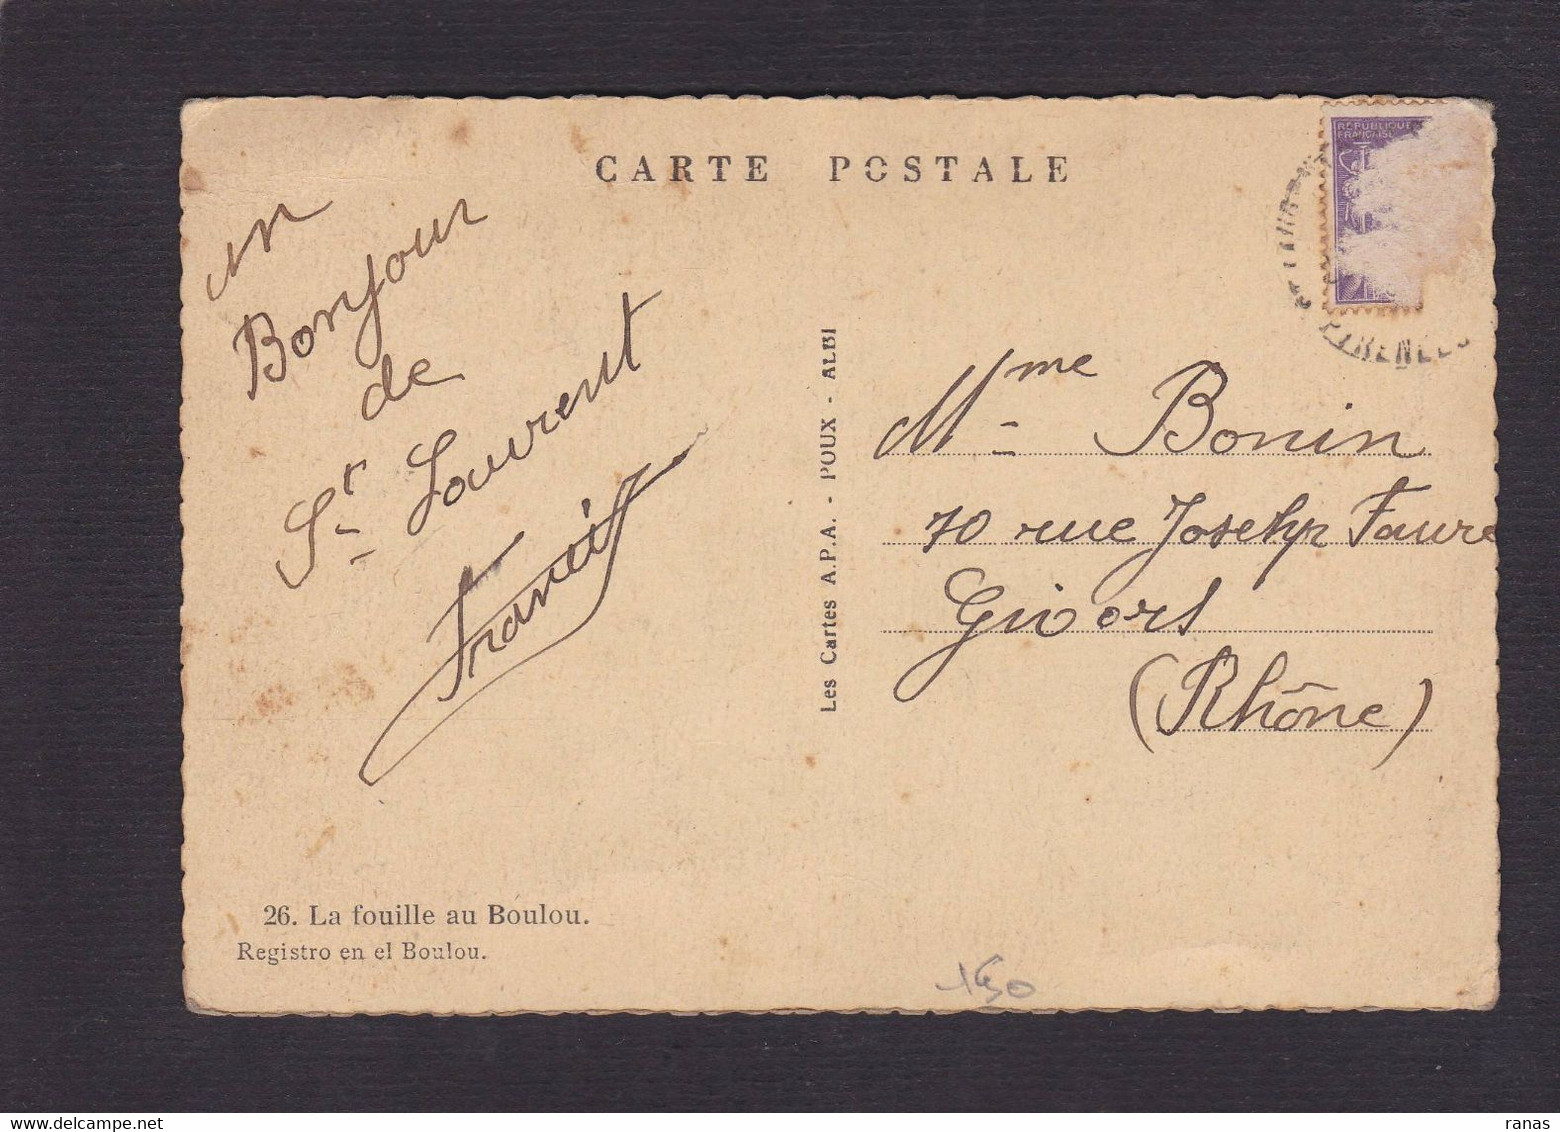 CARTE POSTALE
RÉPUBLIQUE
FRANÇAISE
un
Bonjour
de
St Laurent
Francis
Les Cartes A.P.A. - POUX - ALBI
Mme Bonin
70 rue Joseph Faure
Givors
(Rhône)
26. La fouille au Boulou.
Registro en el Boulou.
ranas